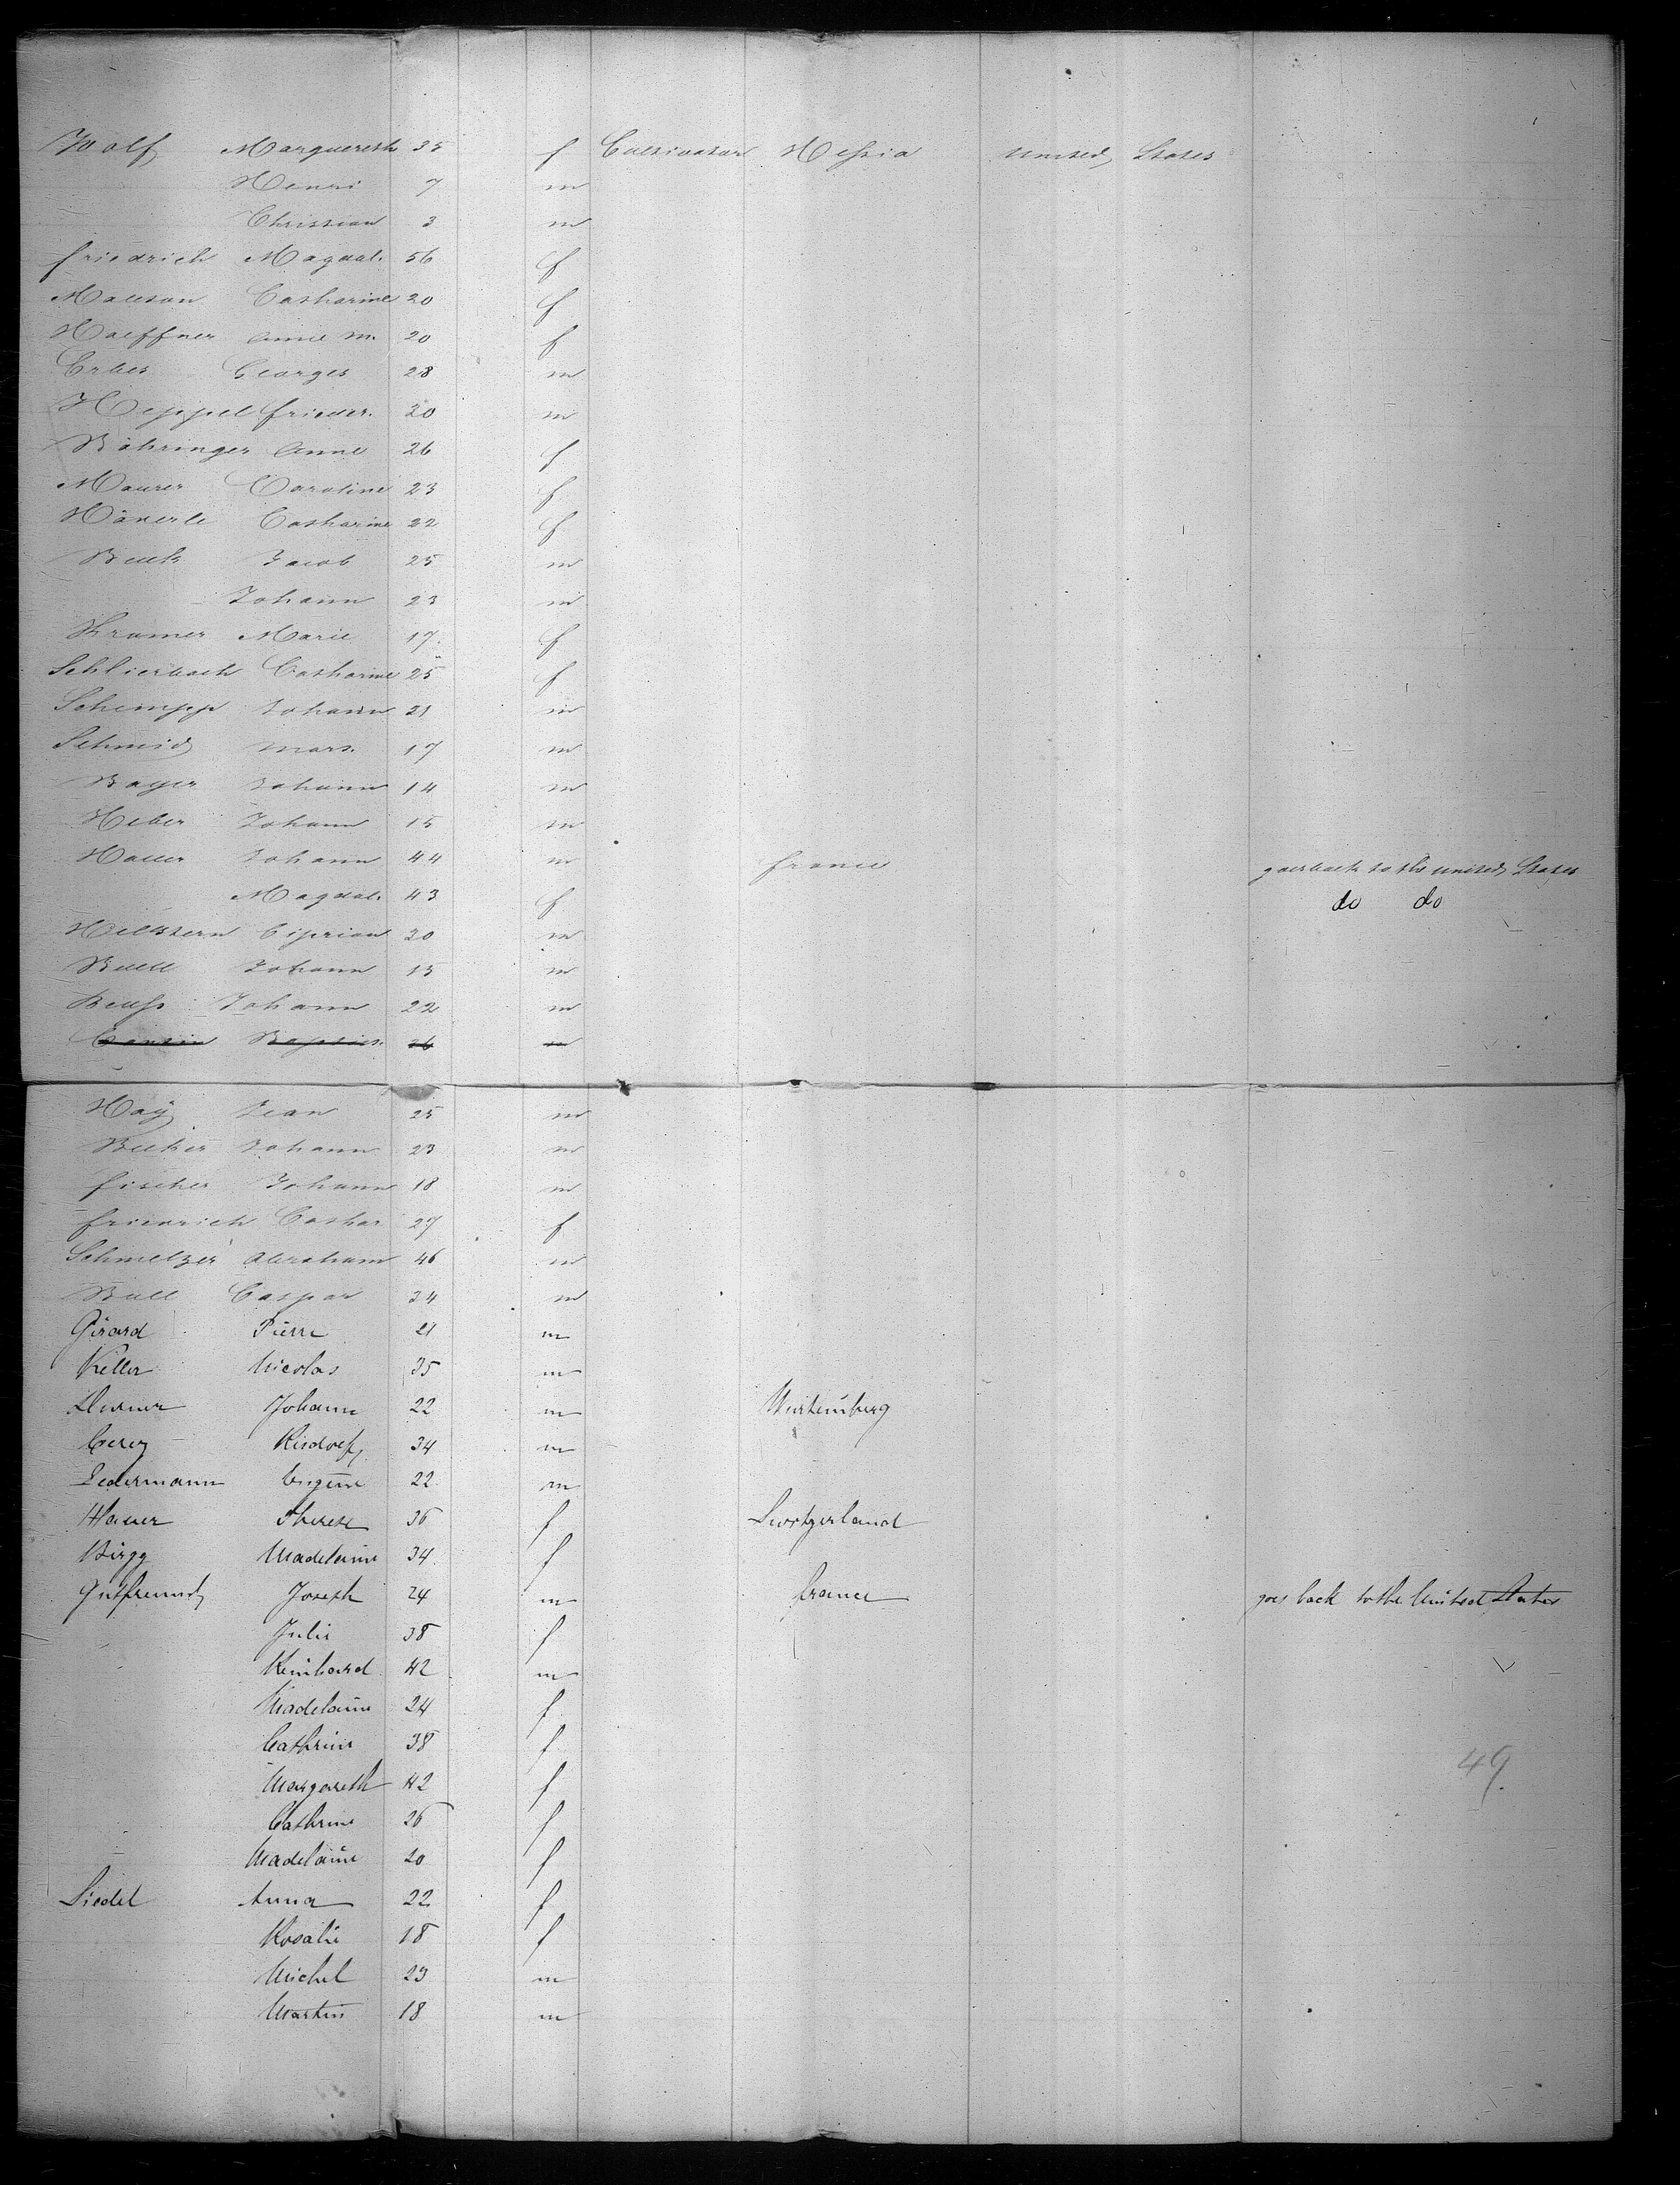 Wolf Marguereth 35 f Cultivator Hessia united States
Henri 7 m
Christian 3 m
friedrich Magdal. 56 f
Catharine 20 f
Haeffner Anne M. 20 f
Erbes Georges 28 m
Heppel frieder. 30 m
Böhringer Anne 26 f
Maurer Caroline 23 f
Catharine 22 f
Jacob 25 m
Johann 23 m
Kramer Marie 17 f
Schlierbach Catharine 25 f
Schempp Johann 21 m
Schmid Mart. 17 m
Bayer Johann 14 m
Heber Johann 15 m
Hauer Johann 44 m france goes back to the united States
Magdal. 43 f do do
Hillstern Ciprian 20 m
Johann 15 m
Beuss Johann 22 m
Baptist. 26 m
Haÿ Jean 25 m
Becker Johann 23 m
fischer Johann 18 m
friedrich Cathar 27 f
Schmelzer Abraham 46 m
Bull Caspar 34 m
Girard Pierre 21 m
Keller Nicolas 35 m
Johann 22 m Wurtemberg
34 m
Ledermann Eugène 22 m
Hauer Therese 36 f Switzerland
Bürgg Madelaine 34 f
Gutfreund Joseph 24 m france goes back to the United States
Julie 38 f
Reinhard 42 m
Madelaine 24 f
Cathrine 38 f
49.
Margareth 42 f
Cathrine 26 f
Madelaine 20 f
Siedel Anna 22 f
Rosalie 18 f
Michel 23 m
Martin 18 m